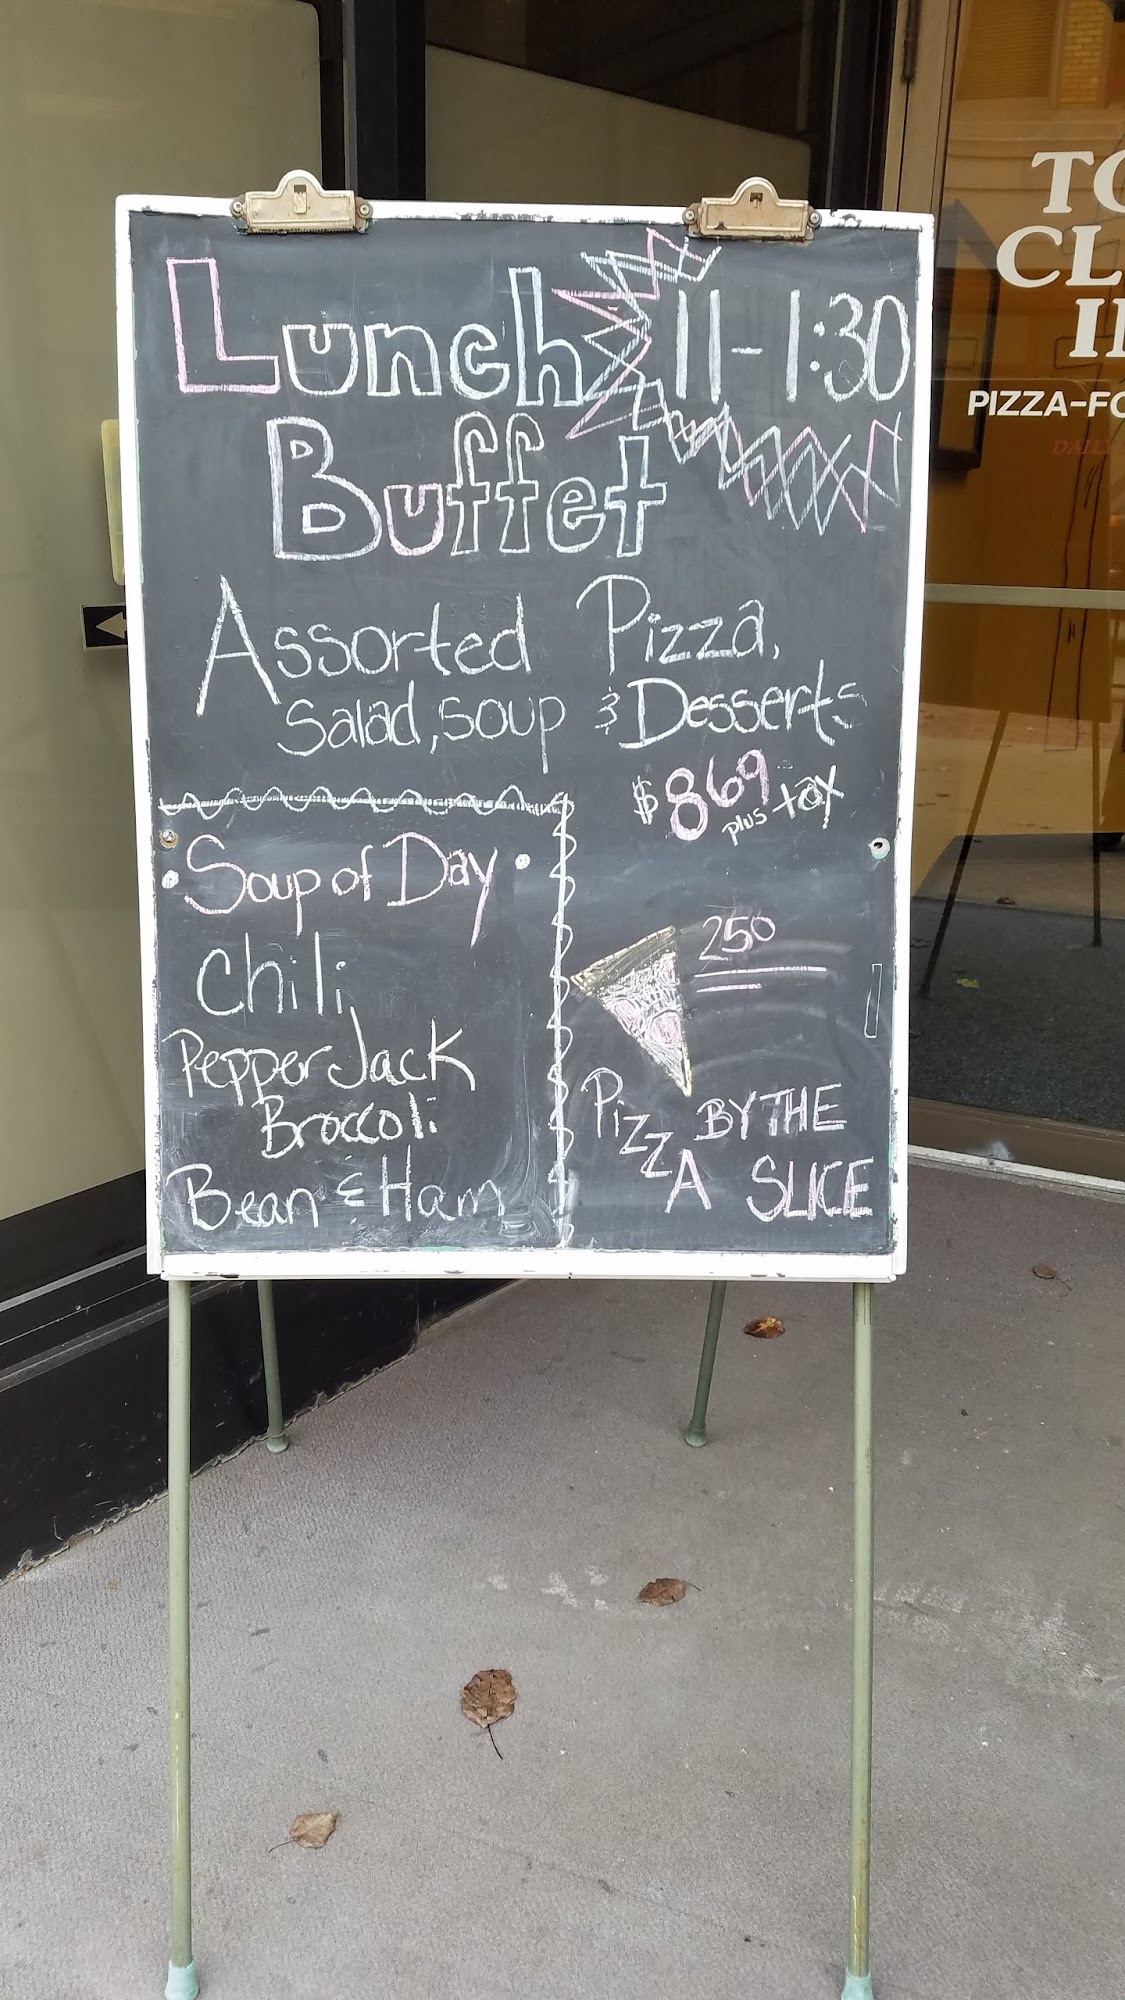 Lunch 11-1:30
Buffet
Assorted Pizza,
Salad, soup & Desserts
$8 69 plus tax
• Soup of Day •
Chili
Pepper Jack
Broccoli
Bean & Ham
250
Pizza BY THE
SLICE
CL
PIZZA-FO
DAILY